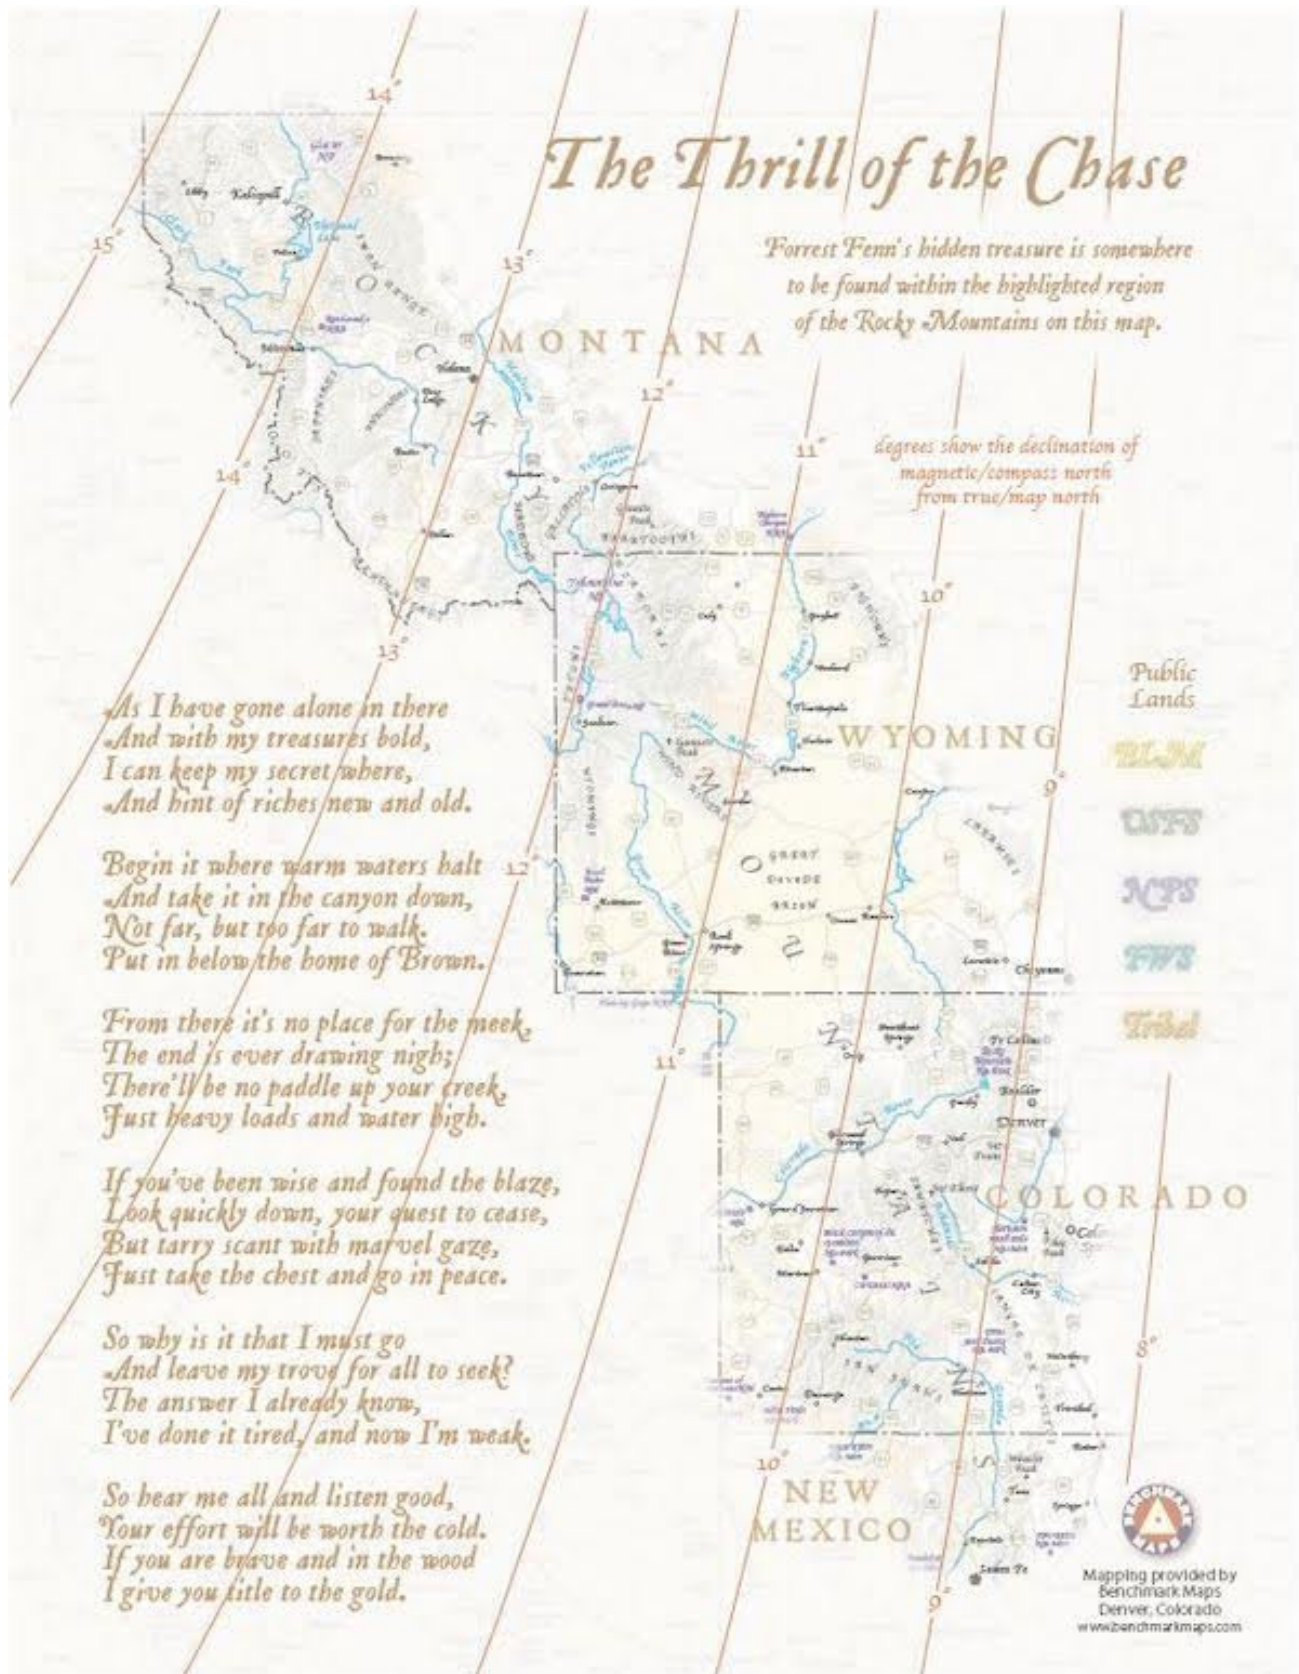 The Thrill of the Chase
Forrest Fenn's hidden treasure is somewhere
to be found within the highlighted region
of the Rocky Mountains on this map.
degrees show the declination of
magnetic/compass north
from true/map north
14°
15°
13°
12°
11°
14°
10°
13°
9°
12°
11°
8°
10°
9°
MONTANA
WYOMING
COLORADO
NEW
MEXICO
ROCKY
MOUNTAINS
Libby
Kalispell
SWAN RANGE
Helena
Butte
Dillon
BEARTOOTHS
Cody
Jackson
WIND RIVERS
GREAT
DIVIDE
BASIN
Rock
Springs
Laramie
Cheyenne
Ft Collins
Boulder
DENVER
Colorado
River
Grand Junction
Gunnison
Salida
Cañon
City
Durango
SAN JUANS
Trinidad
Raton
Wheeler
Peak
Taos
Springer
Santa Fe
Public
Lands
BLM
USFS
NPS
FWS
Tribal
As I have gone alone in there
And with my treasures bold,
I can keep my secret where,
And hint of riches new and old.
Begin it where warm waters halt
And take it in the canyon down,
Not far, but too far to walk.
Put in below the home of Brown.
From there it's no place for the meek,
The end is ever drawing nigh;
There'll be no paddle up your creek,
Just heavy loads and water high.
If you've been wise and found the blaze,
Look quickly down, your quest to cease,
But tarry scant with marvel gaze,
Just take the chest and go in peace.
So why is it that I must go
And leave my trove for all to seek?
The answer I already know,
I've done it tired, and now I'm weak.
So hear me all and listen good,
Your effort will be worth the cold.
If you are brave and in the wood
I give you title to the gold.
BENCHMARK
MAPS
Mapping provided by
Benchmark Maps
Denver, Colorado
www.benchmarkmaps.com